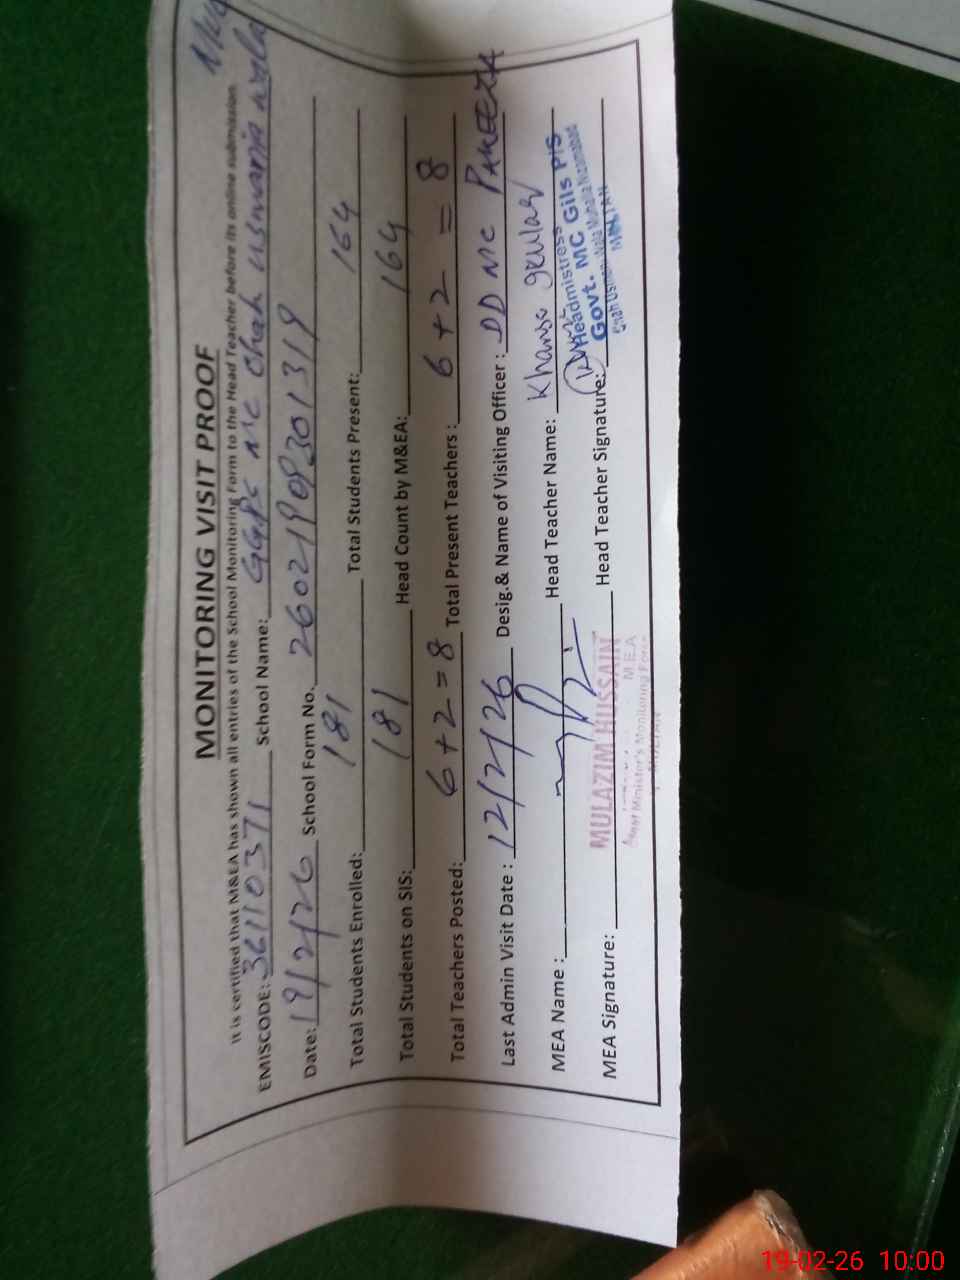 MONITORING VISIT PROOF
It is certified that M&EA has shown all entries of the School Monitoring Form to the Head Teacher before its online submission.
EMISCODE: 36110371 School Name: GGPS MC Chah Usmania Wala
Date: 19/2/26 School Form No. 26021909301319
Total Students Enrolled: 181 Total Students Present: 164
Total Students on SIS: 181 Head Count by M&EA: 164
Total Teachers Posted: 6+2=8 Total Present Teachers : 6+2=8
Last Admin Visit Date : 12/2/26 Desig.& Name of Visiting Officer : DD MC PAKEEZA
MEA Name : Head Teacher Name: Khansa
MEA Signature: Head Teacher Signature:
MULAZIM HUSSAIN
M.E.A
Minister's Monitoring Force
Headmistress
Govt. MC Gils P/S
Chah Usmania Wala Muhalla Nizamabad
MULTAN
19-02-26 10:00